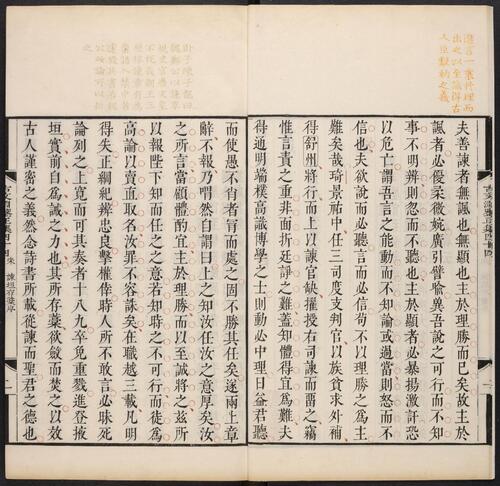 進言一裏於理而
出之以至誠得古
人臣獻納之義
夫善諫者無諷也無顯也主於理勝而已矣故主於
諷者必優柔微婉廣引譬喻冀吾說之可行而不知
事不明辨則忽而不聽也主於顯者必暴揚激訐恐
以危亡謂吾言之能動而不知論或過當則怒而不
信也夫欲說而必聽言而必信苟不以理勝之為主
難矣哉琦景祐中任三司度支判官以族貧求外補
得舒州將行而上以諫官缺擢授右司諫而畱之竊
惟言責之重非面折廷諍之難蓋知體得宜為難夫
得通明端樸高識博學之士則動必中理日益君聽
而使愚不肖者冐而處之固不勝其任矣遂兩上章
辭不報乃喟然自謂曰上之知汝任汝之意厚矣汝
之所言當顧體酌宜主於理勝而以至誠將之茲所
以報陛下知而任之之意若知時之不可行而徒為
高論以賣直取名汝罪不容誅矣在職越三載凡明
得失正綱紀辨忠良擊權倖時人所不敢言必昧死
論列之上寬而可其奏者十八九卒免重戮進登掖
垣實前自為誠之力也其所存藁欲斂而焚之以效
古人謹密之義然念詩書所載從諫而聖君之德也